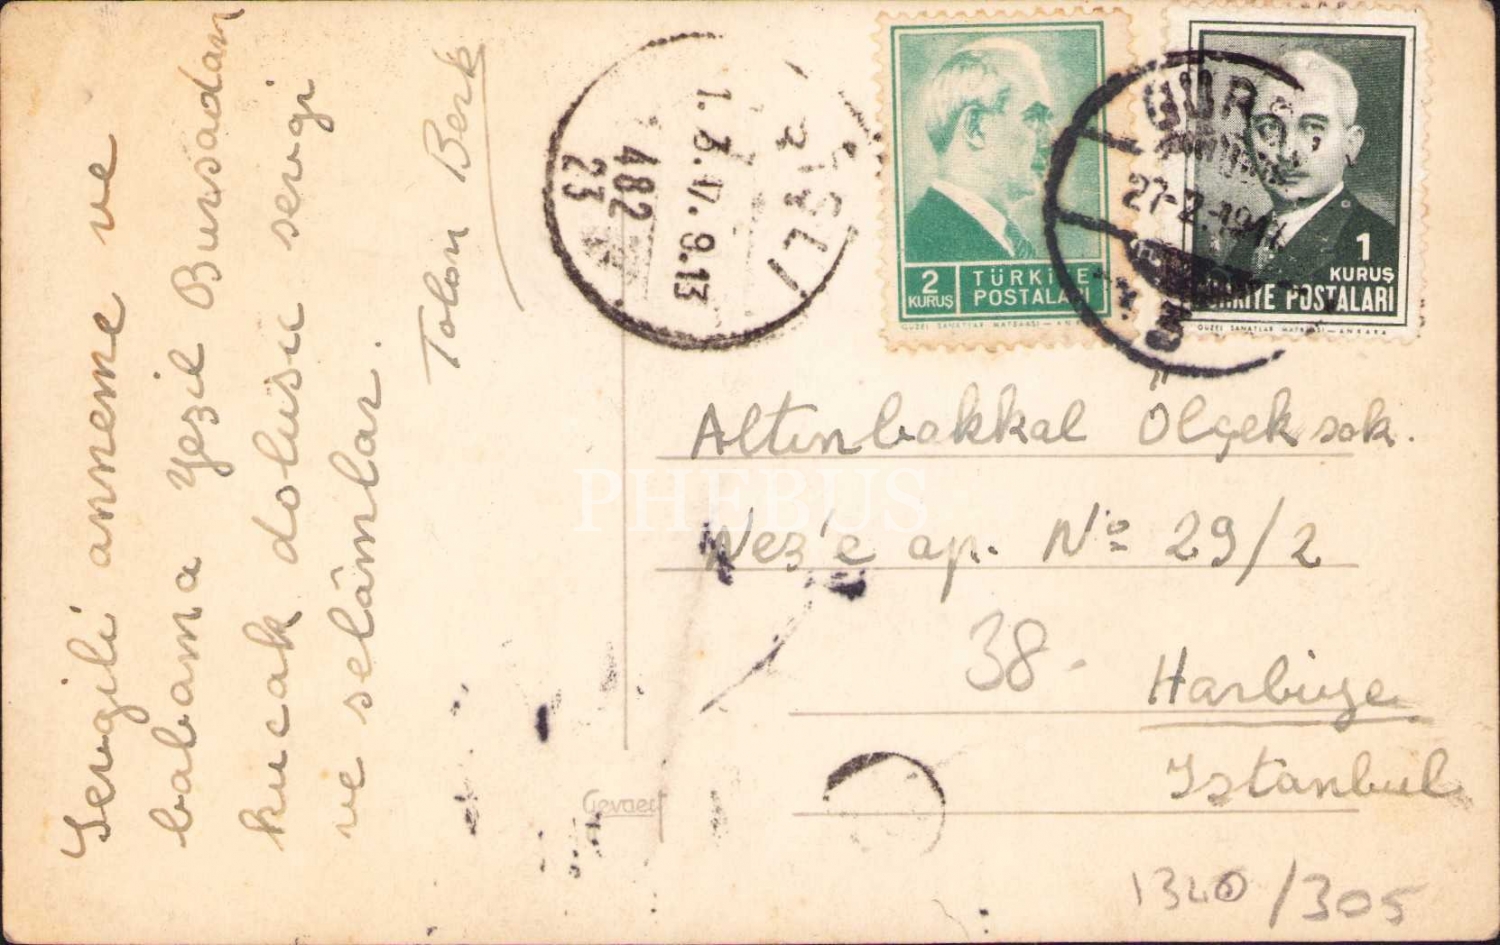 Sevgili anneme ve
babama yeşil Bursadan
kucak dolusu sevgi
ve selâmlar.
Talan Berk
ŞİŞLİ
1.3.47.9.13
482
23
2
KURUŞ
TÜRKİYE
POSTALARI
GÜZEL SANATLAR MATBAASI — ANKARA
27-2-194
1
KURUŞ
TÜRKİYE POSTALARI
GÜZEL SANATLAR MATBAASI — ANKARA
Altınbakkal Ölçek sok.
Neş'e ap. No 29/2
38
Harbiye
Istanbul
PHEBUS
Gevaert
1320/305